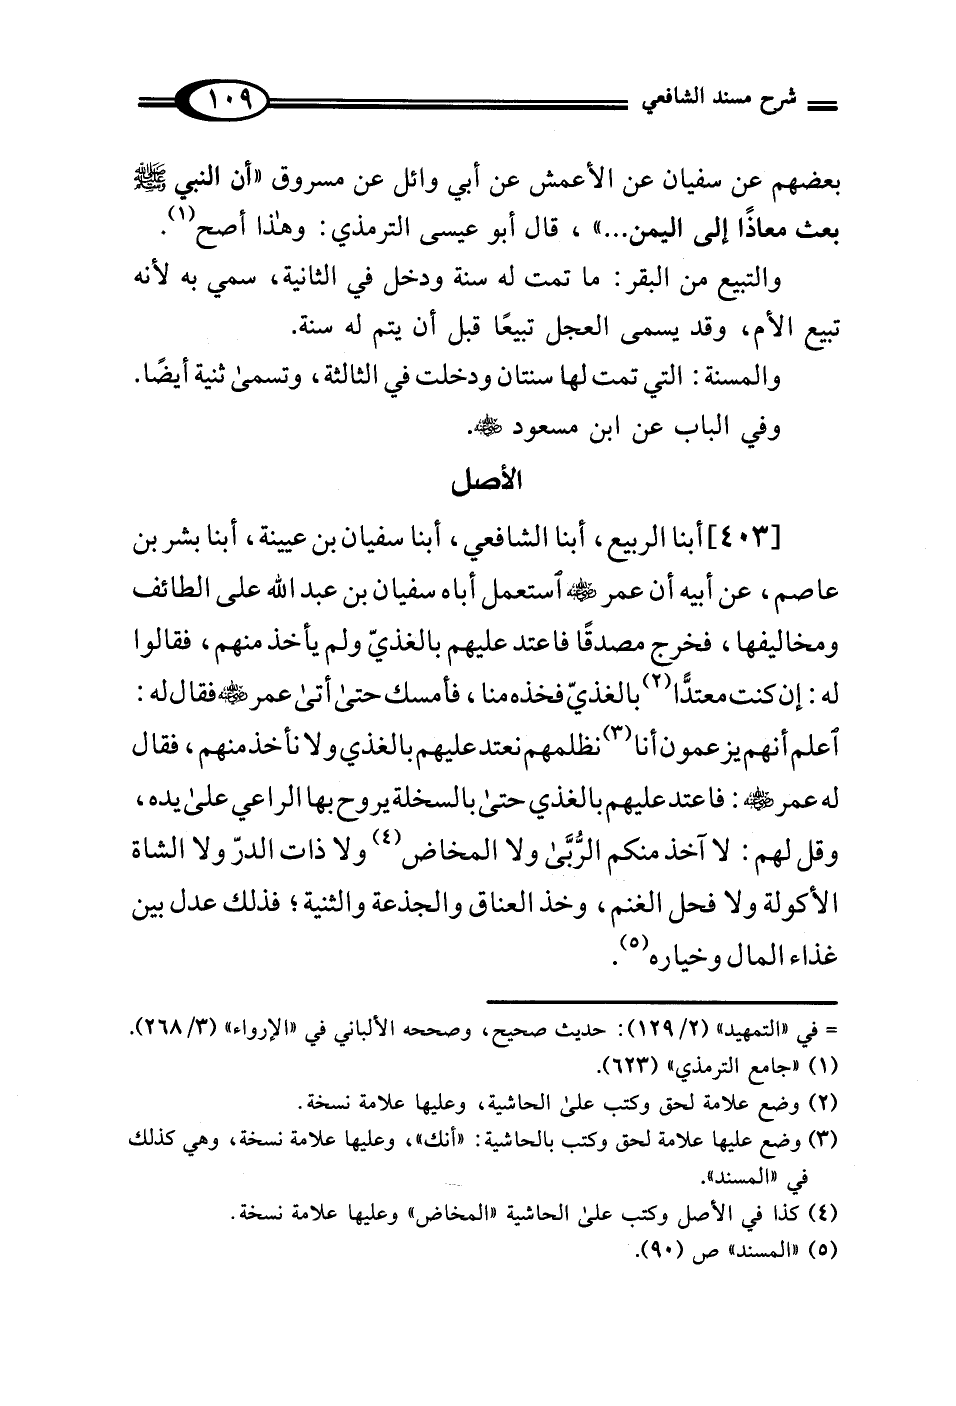 شرح مسند الشافعي ١٠٩
بعضهم عن سفيان عن الأعمش عن أبي وائل عن مسروق «أن النبي ﷺ
بعث معاذًا إلى اليمن...» ، قال أبو عيسى الترمذي: وهذا أصح(١).
والتبيع من البقر: ما تمت له سنة ودخل في الثانية، سمي به لأنه
تبيع الأم، وقد يسمى العجل تبيعًا قبل أن يتم له سنة.
والمسنة: التي تمت لها سنتان ودخلت في الثالثة، وتسمىٰ ثنية أيضًا.
وفي الباب عن ابن مسعود رضي الله عنه.
الأصل
[٤٠٣] أبنا الربيع، أبنا الشافعي، أبنا سفيان بن عيينة، أبنا بشر بن
عاصم، عن أبيه أن عمر رضي الله عنه ٱستعمل أباه سفيان بن عبد الله على الطائف
ومخاليفها، فخرج مصدقًا فاعتد عليهم بالغذيّ ولم يأخذ منهم، فقالوا
له: إن كنت معتدًّا(٢) بالغذيّ فخذه منا، فأمسك حتىٰ أتىٰ عمر رضي الله عنه فقال له:
ٱعلم أنهم يزعمون أنا(٣) نظلمهم نعتد عليهم بالغذي ولا نأخذ منهم، فقال
له عمر رضي الله عنه: فاعتد عليهم بالغذي حتىٰ بالسخلة يروح بها الراعي علىٰ يده،
وقل لهم: لا آخذ منكم الرُّبَّىٰ ولا المخاض(٤) ولا ذات الدرّ ولا الشاة
الأكولة ولا فحل الغنم، وخذ العناق والجذعة والثنية؛ فذلك عدل بين
غذاء المال وخياره(٥).
= في «التمهيد» (٢/ ١٢٩): حديث صحيح، وصححه الألباني في «الإرواء» (٣/ ٢٦٨).
(١) «جامع الترمذي» (٦٢٣).
(٢) وضع علامة لحق وكتب علىٰ الحاشية، وعليها علامة نسخة.
(٣) وضع عليها علامة لحق وكتب بالحاشية: «أنك»، وعليها علامة نسخة، وهي كذلك
في «المسند».
(٤) كذا في الأصل وكتب علىٰ الحاشية «المخاض» وعليها علامة نسخة.
(٥) «المسند» ص (٩٠).